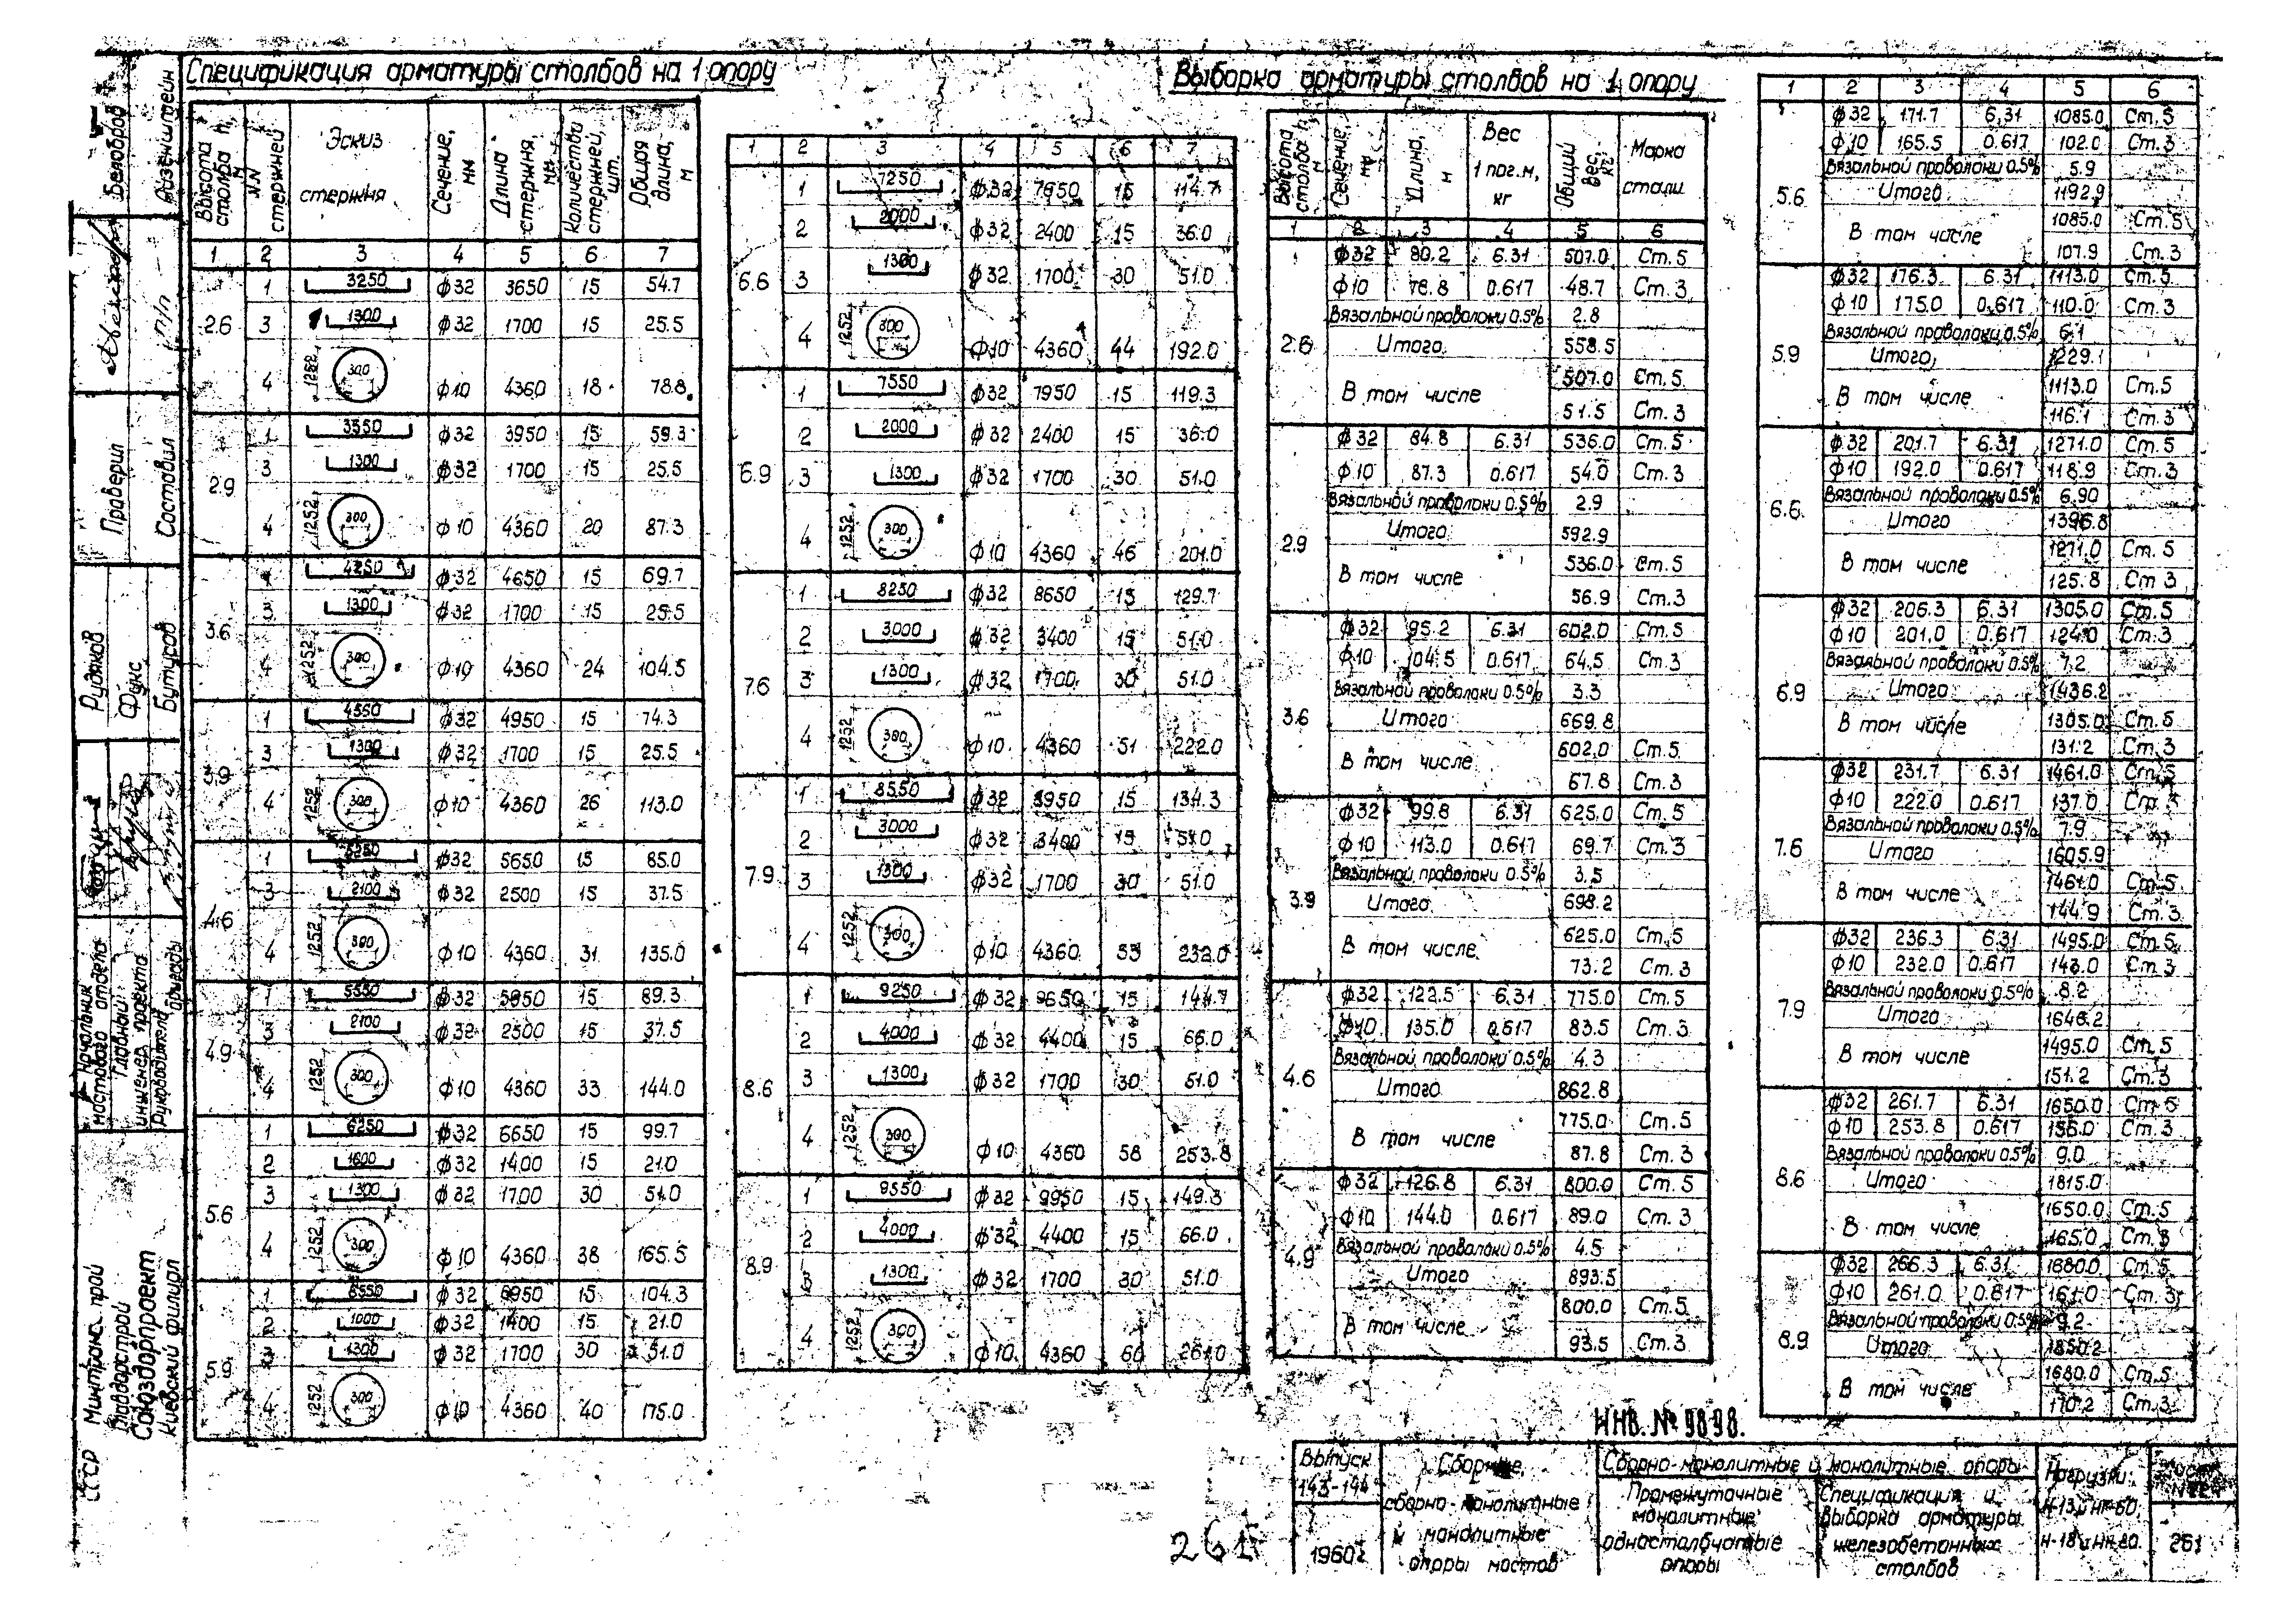 Спецификация арматуры столбов на 1 опору
Высота столба h, м | N.N стержней | Эскиз стержня | Сечение, мм | Длина стержня, мм | Количество стержней, шт. | Общая длина, м
1 2 3 4 5 6 7
2.6
1 3250 ϕ32 3650 15 54.7
3 1300 ϕ32 1700 15 25.5
4 1252 300 ϕ10 4360 18 78.8
2.9
1 3550 ϕ32 3950 15 59.3
3 1300 ϕ32 1700 15 25.5
4 1252 300 ϕ10 4360 20 87.3
3.6
1 4250 ϕ32 4650 15 69.7
3 1300 ϕ32 1700 15 25.5
4 1252 300 ϕ10 4360 24 104.5
3.9
1 4550 ϕ32 4950 15 74.3
3 1300 ϕ32 1700 15 25.5
4 1252 300 ϕ10 4360 26 113.0
4.6
1 5250 ϕ32 5650 15 85.0
3 2100 ϕ32 2500 15 37.5
4 1252 300 ϕ10 4360 31 135.0
4.9
1 5550 ϕ32 5950 15 89.3
3 2100 ϕ32 2500 15 37.5
4 1252 300 ϕ10 4360 33 144.0
5.6
1 6250 ϕ32 6650 15 99.7
2 ϕ32 1400 15 21.0
3 1300 ϕ32 1700 30 51.0
4 1252 300 ϕ10 4360 38 165.5
5.9
1 6550 ϕ32 6950 15 104.3
2 1000 ϕ32 1400 15 21.0
3 1300 ϕ32 1700 30 51.0
4 1252 300 ϕ10 4360 40 175.0
1 2 3 4 5 6 7
6.6
1 7250 ϕ32 7650 15 114.7
2 2000 ϕ32 2400 15 36.0
3 1300 ϕ32 1700 30 51.0
4 1252 300 ϕ10 4360 44 192.0
6.9
1 7550 ϕ32 7950 15 119.3
2 2000 ϕ32 2400 15 36.0
3 1300 ϕ32 1700 30 51.0
4 1252 300 ϕ10 4360 46 201.0
7.6
1 8250 ϕ32 8650 15 129.7
2 3000 ϕ32 3400 15 51.0
3 1300 ϕ32 1700 30 51.0
4 1252 300 ϕ10 4360 51 222.0
7.9
1 8550 ϕ32 8950 15 134.3
2 3000 ϕ32 3400 15 51.0
3 1300 ϕ32 1700 30 51.0
4 1252 300 ϕ10 4360 53 232.0
8.6
1 9250 ϕ32 9650 15 144.7
2 4000 ϕ32 4400 15 66.0
3 1300 ϕ32 1700 30 51.0
4 1252 300 ϕ10 4360 58 253.8
8.9
1 9550 ϕ32 9950 15 149.3
2 4000 ϕ32 4400 15 66.0
3 1300 ϕ32 1700 30 51.0
4 1252 300 ϕ10 4360 60 261.0
Выборка арматуры столбов на 1 опору
Высота столба h, м | Сечение, мм | Длина, м | Вес 1 пог.м, кг | Общий вес, кг | Марка стали
1 2 3 4 5 6
2.6
ϕ32 80.2 6.31 507.0 Ст.5
ϕ10 78.8 0.617 48.7 Ст.3
Вязальной проволоки 0.5% 2.8
Итого 558.5
В том числе
507.0 Ст.5
51.5 Ст.3
2.9
ϕ32 84.8 6.31 536.0 Ст.5
ϕ10 87.3 0.617 54.0 Ст.3
Вязальной проволоки 0.5% 2.9
Итого 592.9
В том числе
536.0 Ст.5
56.9 Ст.3
3.6
ϕ32 95.2 6.31 602.0 Ст.5
ϕ10 104.5 0.617 64.5 Ст.3
Вязальной проволоки 0.5% 3.3
Итого 669.8
В том числе
602.0 Ст.5
67.8 Ст.3
3.9
ϕ32 99.8 6.31 625.0 Ст.5
ϕ10 113.0 0.617 69.7 Ст.3
Вязальной проволоки 0.5% 3.5
Итого 698.2
В том числе
625.0 Ст.5
73.2 Ст.3
4.6
ϕ32 122.5 6.31 775.0 Ст.5
ϕ10 135.0 0.617 83.5 Ст.3
Вязальной проволоки 0.5% 4.3
Итого 862.8
В том числе
775.0 Ст.5
87.8 Ст.3
4.9
ϕ32 126.8 6.31 800.0 Ст.5
ϕ10 144.0 0.617 89.0 Ст.3
Вязальной проволоки 0.5% 4.5
Итого 893.5
В том числе
800.0 Ст.5
93.5 Ст.3
1 2 3 4 5 6
5.6
ϕ32 171.7 6.31 1085.0 Ст.5
ϕ10 165.5 0.617 102.0 Ст.3
Вязальной проволоки 0.5% 5.9
Итого 1192.9
В том числе
1085.0 Ст.5
107.9 Ст.3
5.9
ϕ32 176.3 6.31 1113.0 Ст.5
ϕ10 175.0 0.617 110.0 Ст.3
Вязальной проволоки 0.5% 6.1
Итого 1229.1
В том числе
1113.0 Ст.5
116.1 Ст.3
6.6
ϕ32 201.7 6.31 1271.0 Ст.5
ϕ10 192.0 0.617 118.9 Ст.3
Вязальной проволоки 0.5% 6.90
Итого 1396.8
В том числе
1271.0 Ст.5
125.8 Ст.3
6.9
ϕ32 206.3 6.31 1305.0 Ст.5
ϕ10 201.0 0.617 124.0 Ст.3
Вязальной проволоки 0.5% 7.2
Итого 1436.2
В том числе
1305.0 Ст.5
131.2 Ст.3
7.6
ϕ32 231.7 6.31 1461.0 Ст.5
ϕ10 222.0 0.617 137.0 Ст.3
Вязальной проволоки 0.5% 7.9
Итого 1605.9
В том числе
1461.0 Ст.5
144.9 Ст.3
7.9
ϕ32 236.3 6.31 1495.0 Ст.5
ϕ10 232.0 0.617 143.0 Ст.3
Вязальной проволоки 0.5% 8.2
Итого 1646.2
В том числе
1495.0 Ст.5
151.2 Ст.3
8.6
ϕ32 261.7 6.31 1650.0 Ст.5
ϕ10 253.8 0.617 156.0 Ст.3
Вязальной проволоки 0.5% 9.0
Итого 1815.0
В том числе
1650.0 Ст.5
165.0 Ст.3
8.9
ϕ32 266.3 6.31 1680.0 Ст.5
ϕ10 261.0 0.617 161.0 Ст.3
Вязальной проволоки 0.5% 9.2
Итого 1850.2
В том числе
1680.0 Ст.5
170.2 Ст.3
ИНВ. № 9898.
Выпуск
143-144
1960г.
Сборные,
сборно-монолитные
и монолитные
опоры мостов
Сборно-монолитные и монолитные опоры
Промежуточные
монолитные
одностолбчатые
опоры
Спецификация и
выборка арматуры
железобетонных
столбов
Нагрузки:
Н-13 и НГ-60,
Н-18 и НК-80
261
261
Белобров
Айзенштейн
п/п
Проверил
Составил
Рудаков
Фукс
Бутусов
Начальник
мостового отдела
Главный
инженер проекта
Руководитель
бригады
СССР
Минтрансстрой
Главдорстрой
Союздорпроект
Киевский филиал